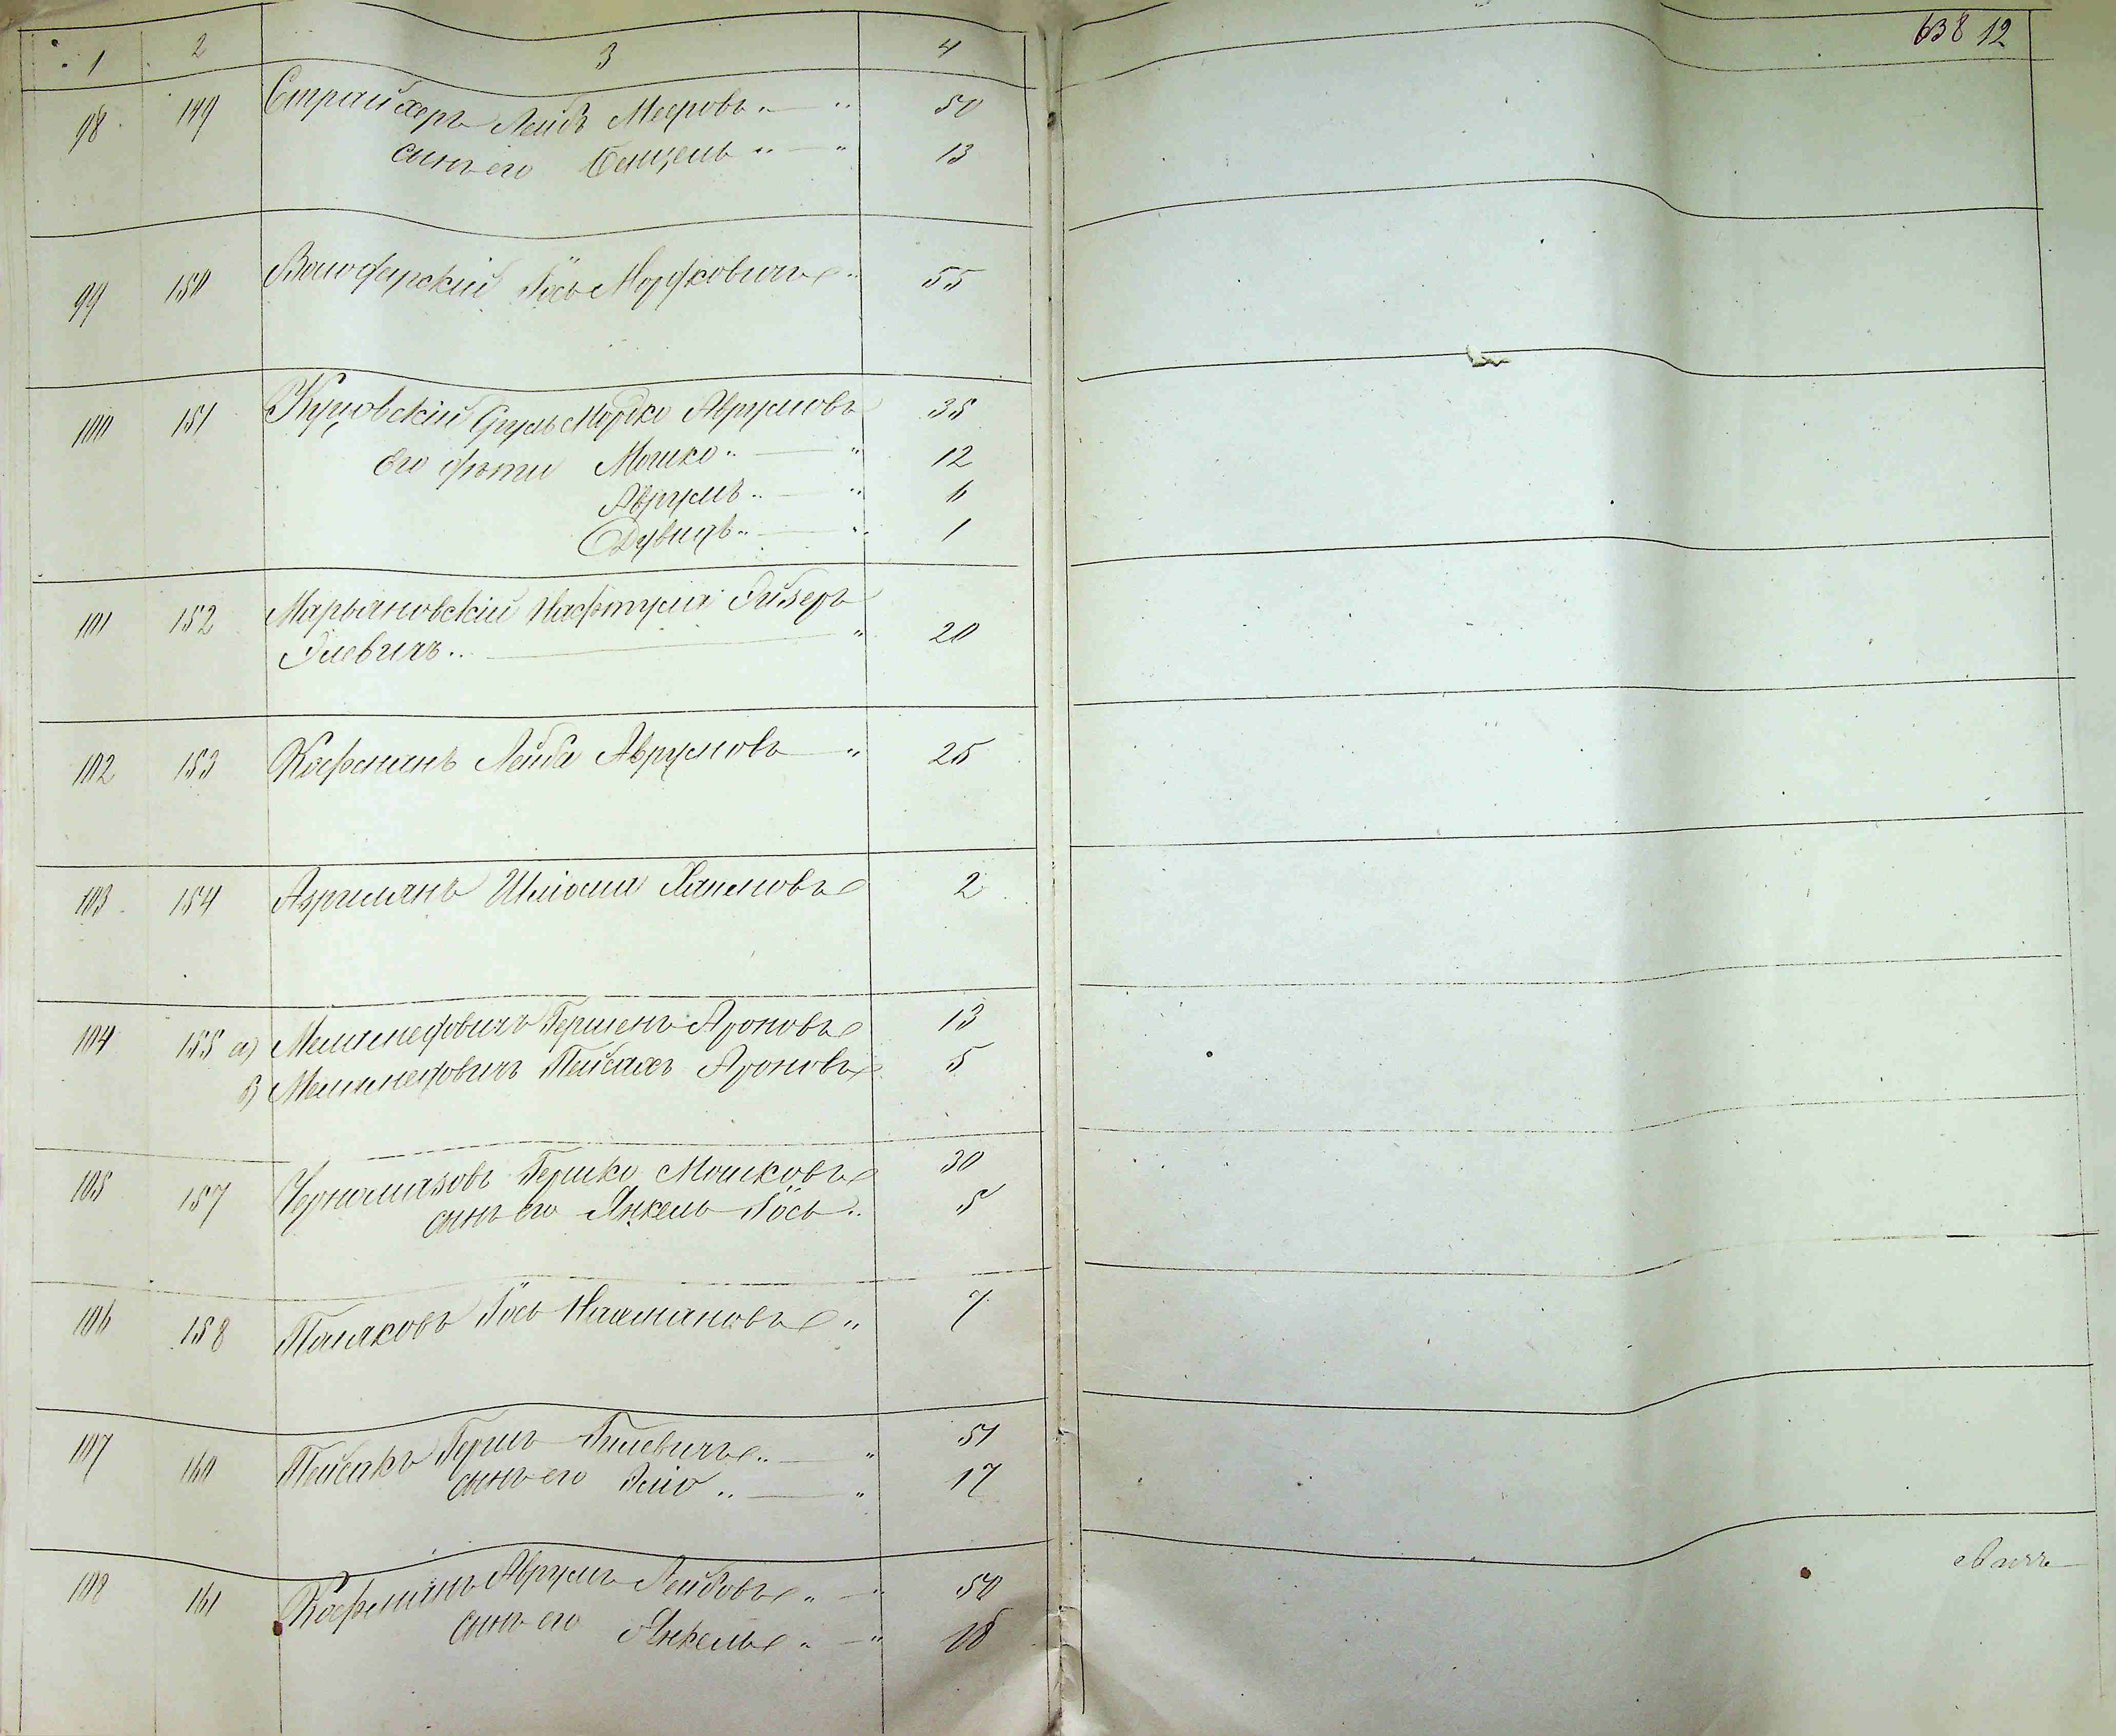 638 12
1 2 3 4
98 149 Страйхеръ Лейбъ Мееровъ 50
сынъ его Бенцель 13
99 150 Володарскій Іось Мордковичъ 55
100 151 Куцовскій Сруль Мордко Аврумовъ 35
его дѣти Мошко 12
Аврумъ 6
Дувидъ 1
101 152 Марьяновскій Нафтула Лейзеръ
Элевичъ 20
102 153 Кофманъ Лейба Аврумовъ 25
103 154 Азрилянъ Шліома Хаимовъ 2
104 155 а) Меламедовичъ Гершенъ Ароновъ 13
в) Меламедовичъ Пейсахъ Ароновъ 5
105 157 Черномазовъ Гершко Мошковъ 30
сынъ его Янкель Іось 5
106 158 Поляковъ Іось Нахмановъ 7
107 160 Пейсакъ Гершъ Гилевичъ 51
сынъ его Эліо 17
108 161 Кофманъ Аврумъ Лейбовъ 50
сынъ его Янкель 18